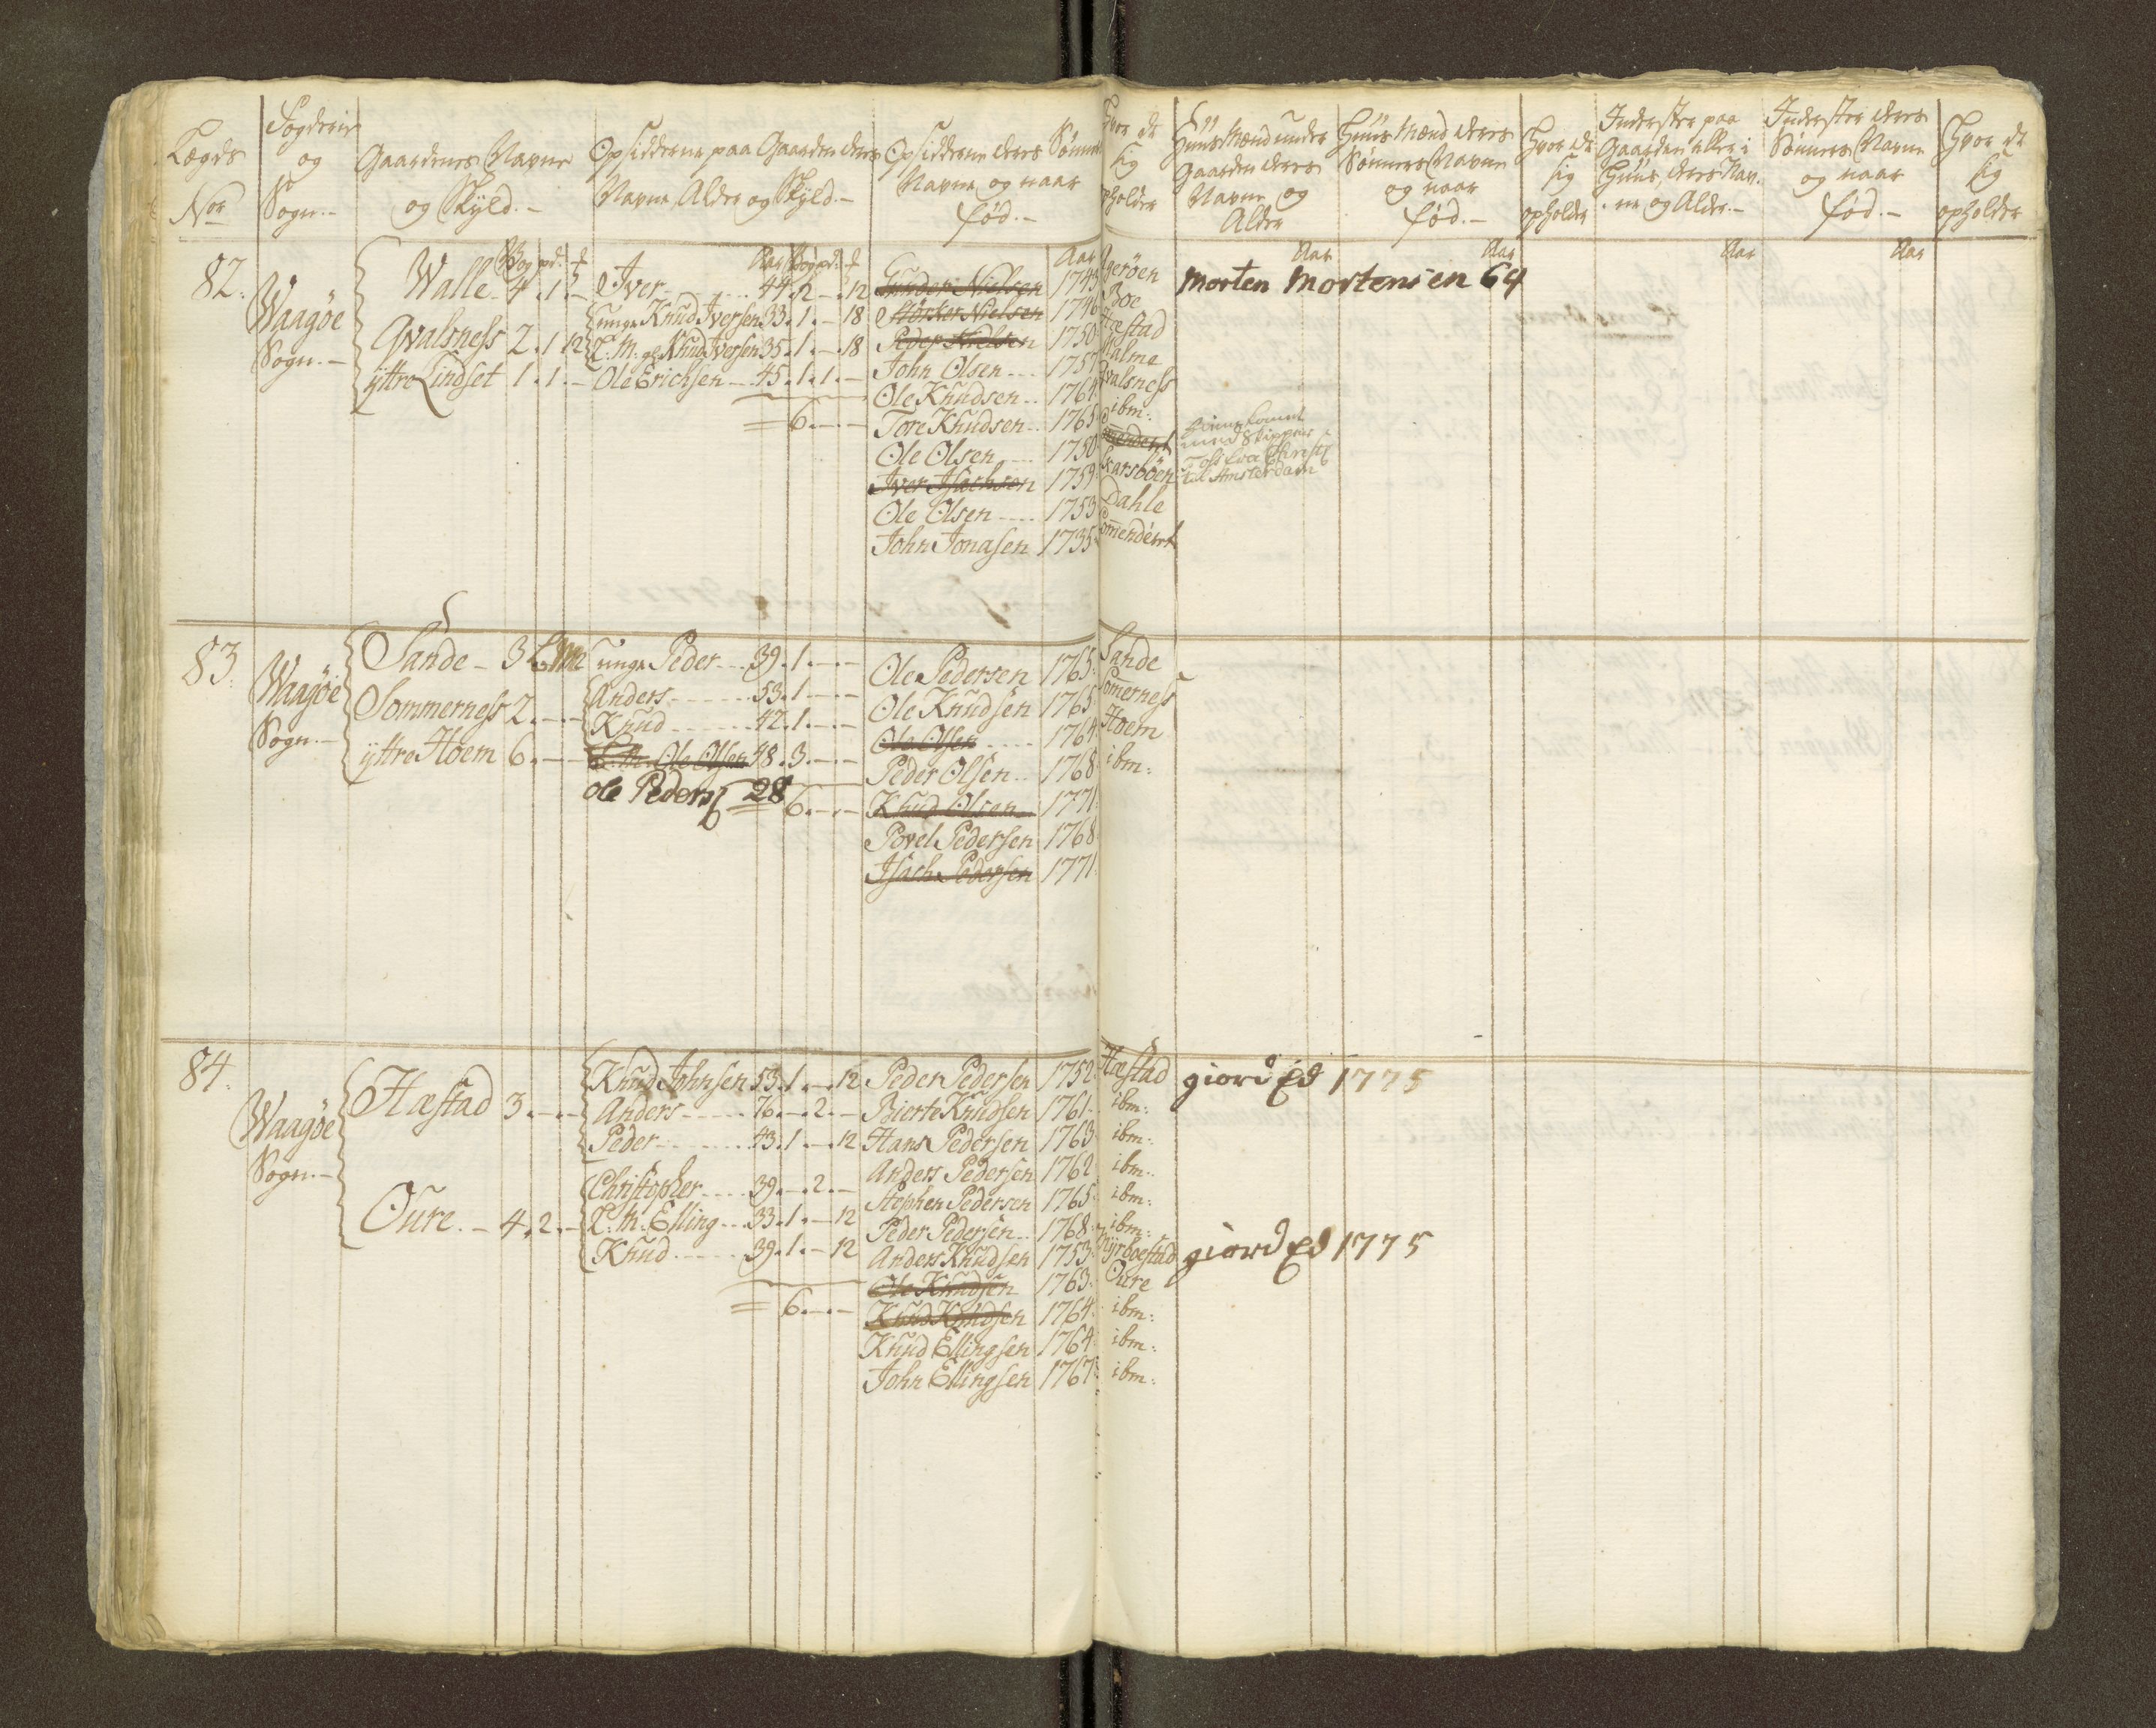 Lægds
Nor
Fogderie
og
Sogn.-
Gaardenes Navne
og Skyld.-
Opsidderne paa Gaarden deres
Navne, Alder og Skyld.-
Opsidderne deres Sønners
Navne og naar
fød.-
Hvor de
sig
opholder
Huus Mænd under
Gaarden deres
Navne og
Alder
Huus Mænd deres
Sønners Navne
og naar
fød.-
Hvor de
sig
opholder
Inderster paa
Gaarden eller i
Huus, deres Nav-
ne og Alder.-
Inderster deres
Sønners Navne
og naar
fød.-
Hvor de
sig
opholder
Aar Aar Aar Aar Aar Aar
82.
Waagøe
Sogn.-
Walle 4.1.-
Qvalsness 2.1.12
yttre Lindset 1.1.-
Iver 44.2.-.12
unge Knud Iversen 33.1.-.18
L:M: gl Knud Iversen 35.1.-.18
Ole Erichsen 45.1.1.-
6.-.-
Gunder Nielsen 1743
Nielsen 1746 Boe
Peder 1750 Hæstad
John Olsen 1757 Malme
Ole Knudsen 1764 Qvalsness
Tore Knudsen 1765 ibm:
Ole Olsen 1750
Iver Isachsen 1759 Skarsböen
Ole Olsen 1753 Dahle
John Jonasen 1735
Morten Mortensen 64
med Skipper
til Amsterdam
83.
Waagøe
Sogn.-
Sande 3
Sommerness 2.-.-
yttre Hoem 6.-.-
unge Peder 39.1.-.-
Anders 53.1.-.-
Knud 42.1.-.-
L:M: Ole Olsen 48.3.-.-
ole Peders 28
6.-.-
Ole Pedersen 1765 Sande
Ole Knudsen 1765 Sommerness
Ole Olsen 1764 Hoem
Peder Olsen 1768 ibm:
Knud Olsen 1771
Povel Pedersen 1768
Isach Pedersen 1771
84.
Waagøe
Sogn.-
Hæstad 3.-.-
Oure 4.2.-
Knud Johnsen 53.1.-.12
Anders 76.-.2.-
Peder 43.1.-.12
Christopher 39.-.2.-
L:M: Elling 33.1.-.12
Knud 39.1.-.12
6.-.-
Peder Pedersen 1752 Hæstad
Bierte Knudsen 1761 ibm:
Hans Pedersen 1763 ibm:
Anders Pedersen 1762 ibm:
Stephen Pedersen 1765 ibm:
Peder Pedersen 1768 ibm:
Anders Knudsen 1753
Ole Knudsen 1763 Oure
Knud Knudsen 1764 ibm:
Knud Ellingsen 1764 ibm:
John Ellingsen 1767 ibm:
giord Ed 1775
giord Ed 1775